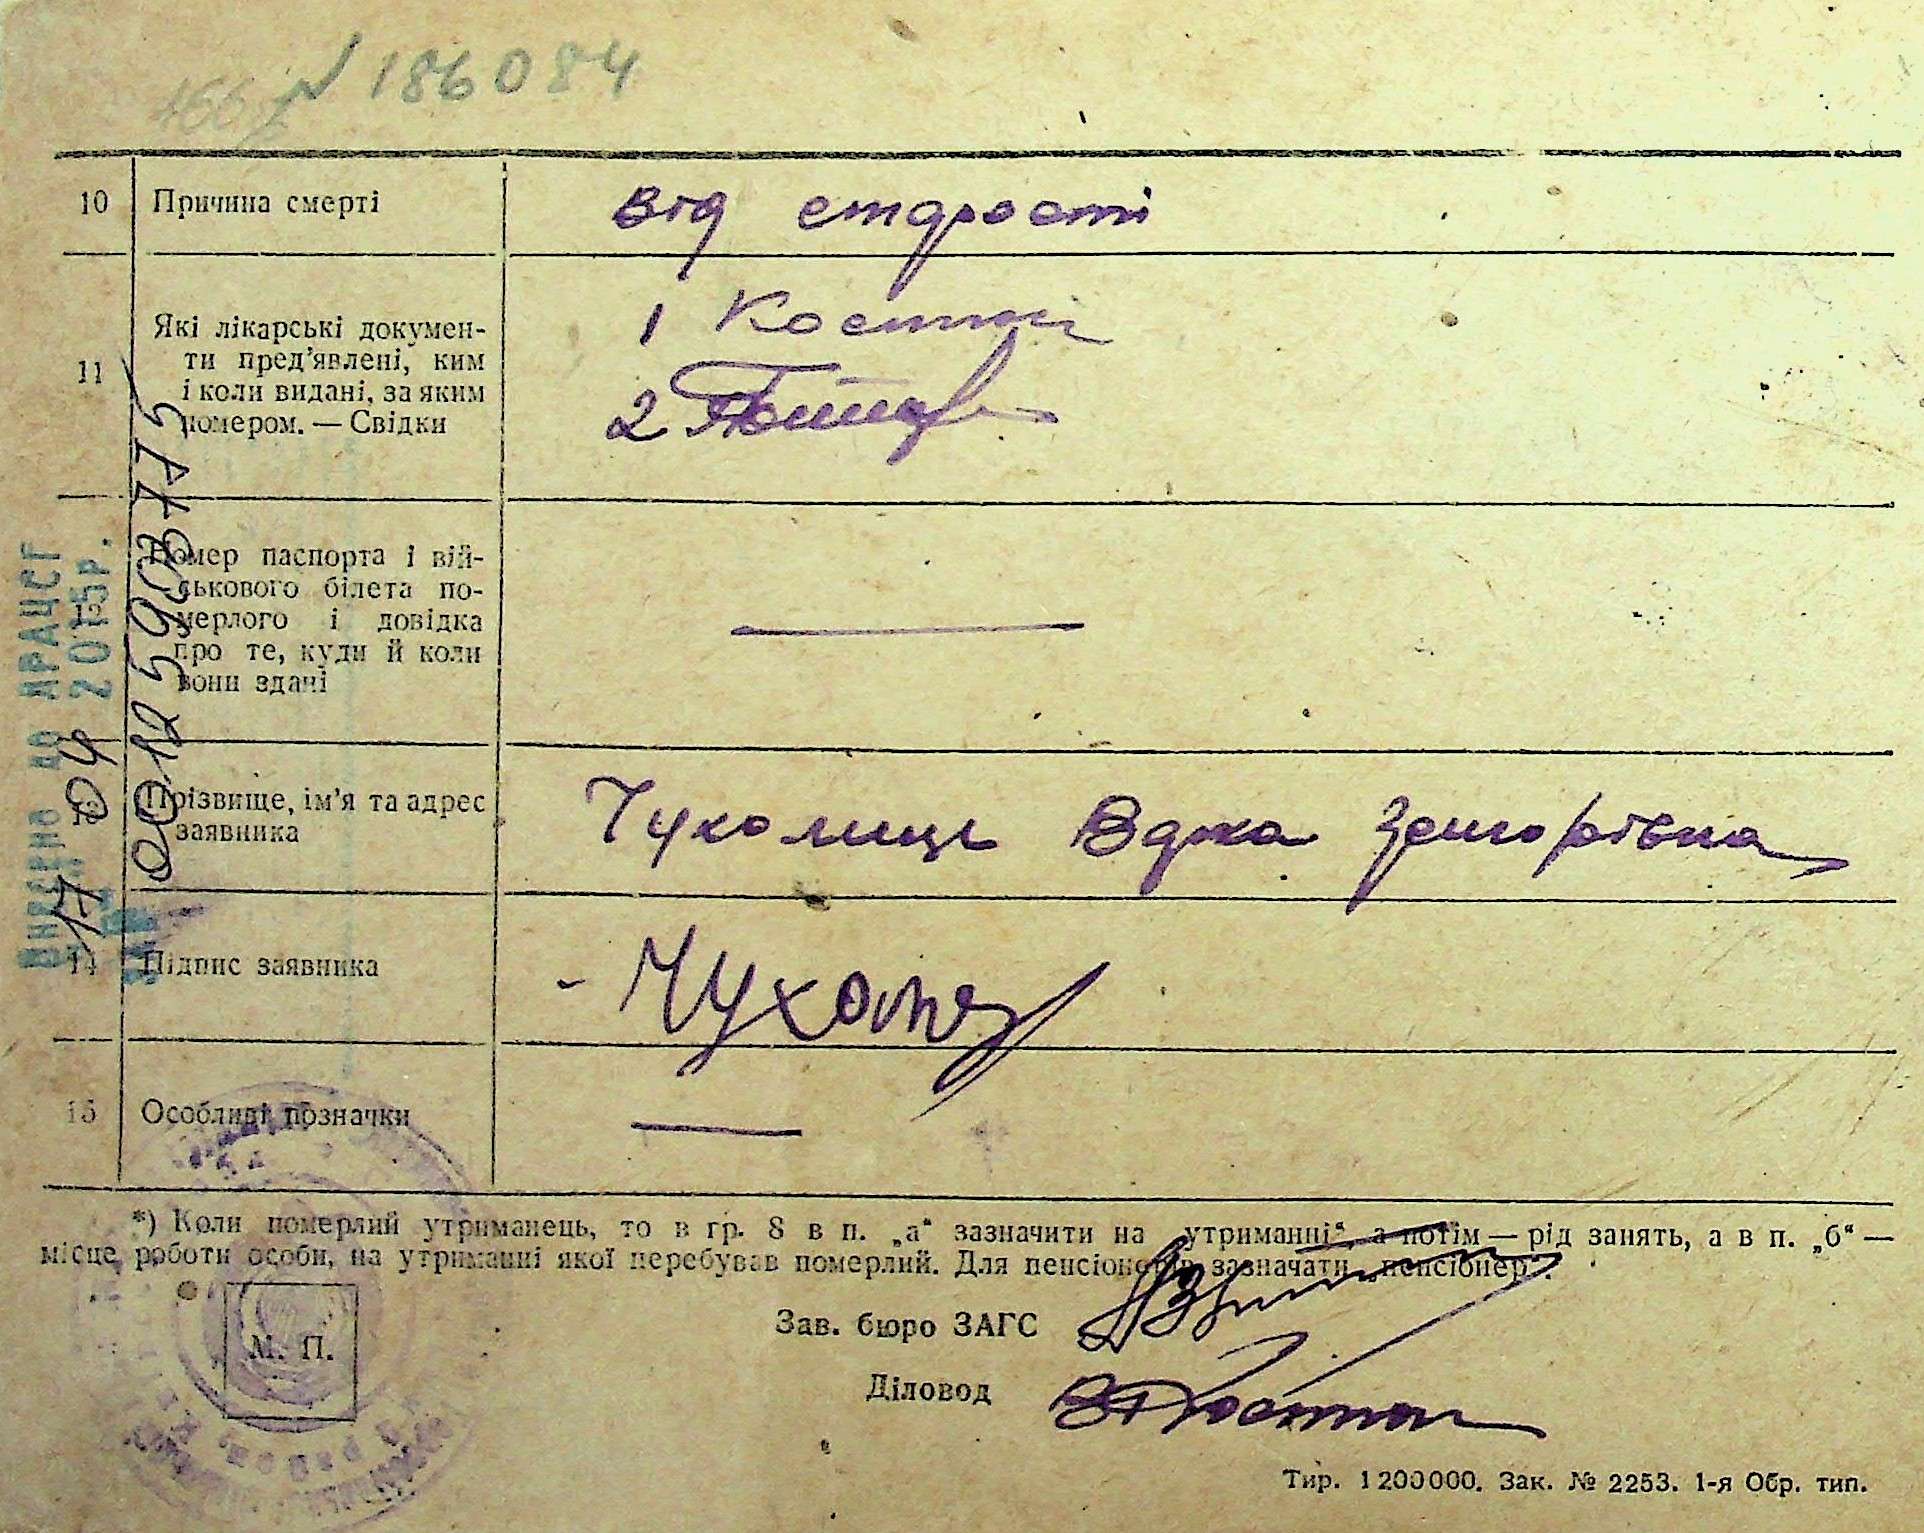 № 186084
10 Причина смерті від старості
11 Які лікарські докумен-
ти пред'явлені, ким
і коли видані, за яким
номером. — Свідки
1
2
12 Номер паспорта і вій-
ськового білета по-
мерлого і довідка
про те, куди й коли
вони здані —
13 Прізвище, ім'я та адрес
заявника
14 Підпис заявника
15 Особливі позначки —
*) Коли померлий утриманець, то в гр. 8 в п. „а“ зазначити на „утриманні“, а потім — рід занять, а в п. „б“ —
місце роботи особи, на утриманні якої перебував померлий. Для пенсіонерів зазначати „пенсіонер“.
Зав. бюро ЗАГС
М. П.
Діловод
Тир. 1200000. Зак. № 2253. 1-я Обр. тип.
Внесено до ДРАЦСГ
17 04 2015р.